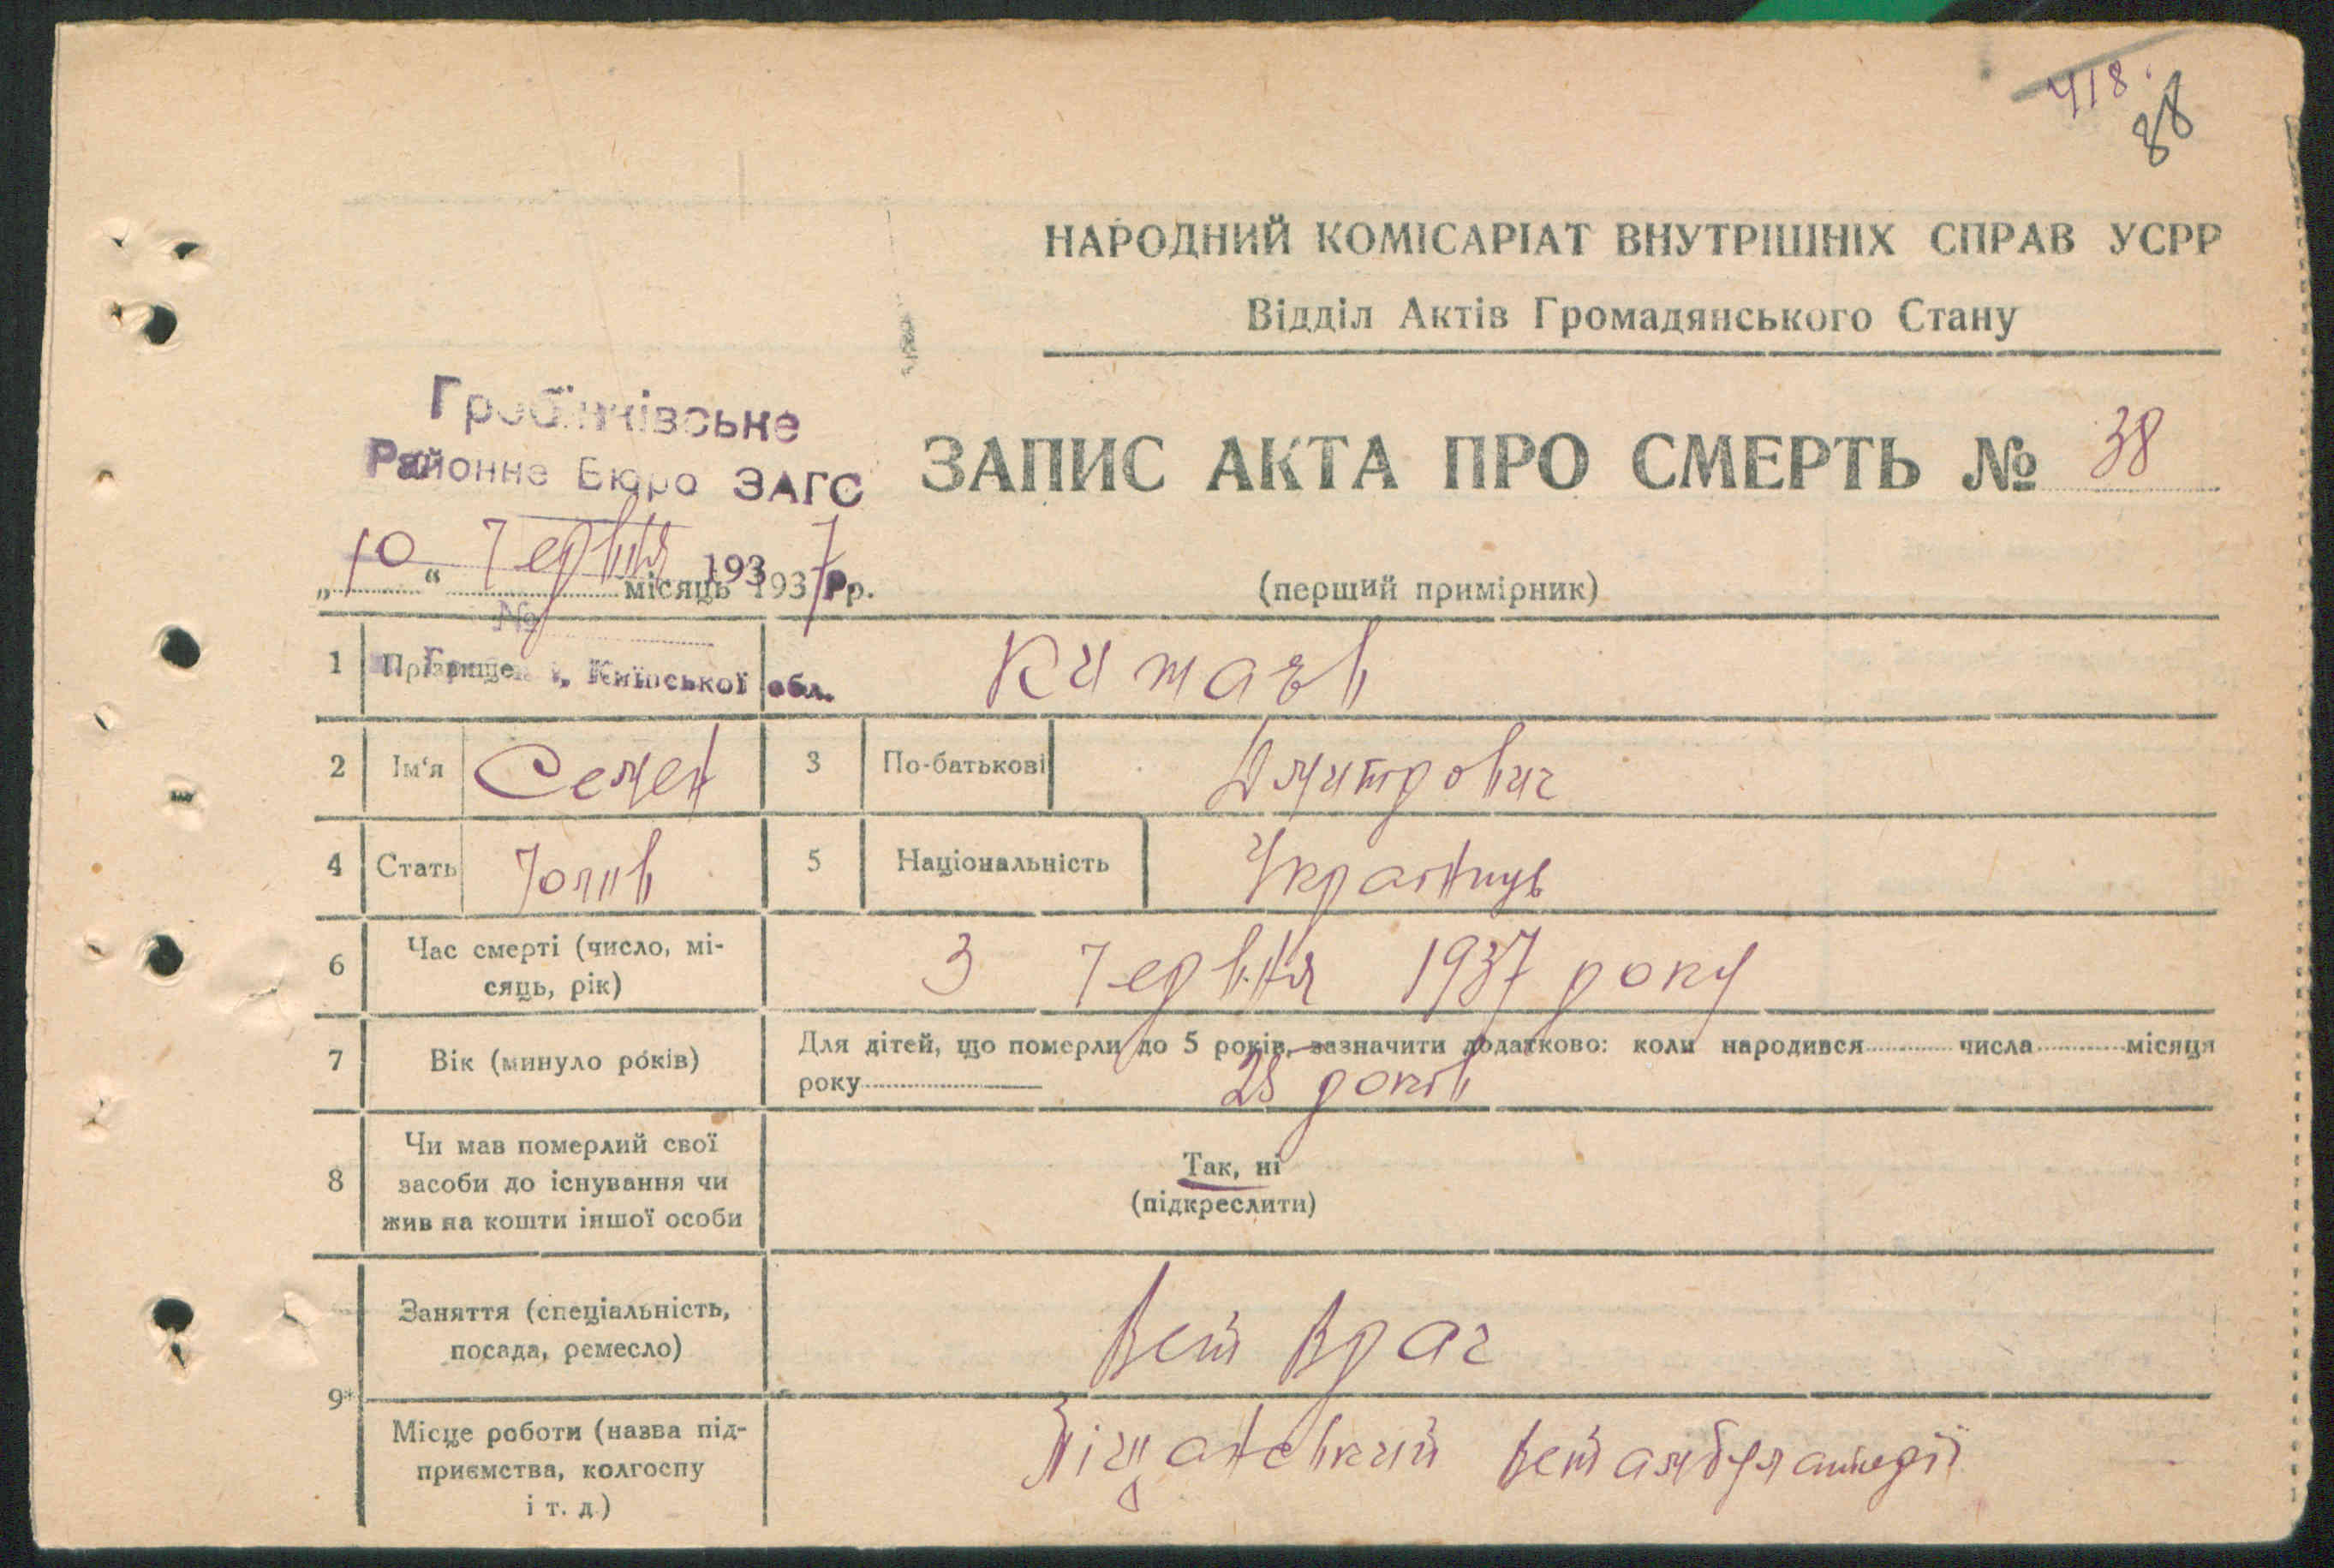 418.
88
НАРОДНИЙ КОМІСАРІАТ ВНУТРІШНІХ СПРАВ УСРР
Відділ Актів Громадянського Стану
Гребінківське
Районне Бюро ЗАГС
ЗАПИС АКТА ПРО СМЕРТЬ № 38
„10“ Червня місяць 193 1937 р р.
(перший примірник)
№
1 Прізвище Київської обл.
2 Ім‘я Семен 3 По-батькові Дмитрович
4 Стать Чолов 5 Національність Українць
6 Час смерті (число, мі-
сяць, рік) 3 Червня 1937 року
7 Вік (минуло років) Для дітей, що померли до 5 років, зазначити додатково: коли народився числа місяця
року 28 років
8 Чи мав померлий свої
засоби до існування чи
жив на кошти іншої особи
Так, ні
(підкреслити)
9* Заняття (спеціальність,
посада, ремесло) Вет Врач
Місце роботи (назва під-
приємства, колгоспу
і т. д.) вет амбулаторії